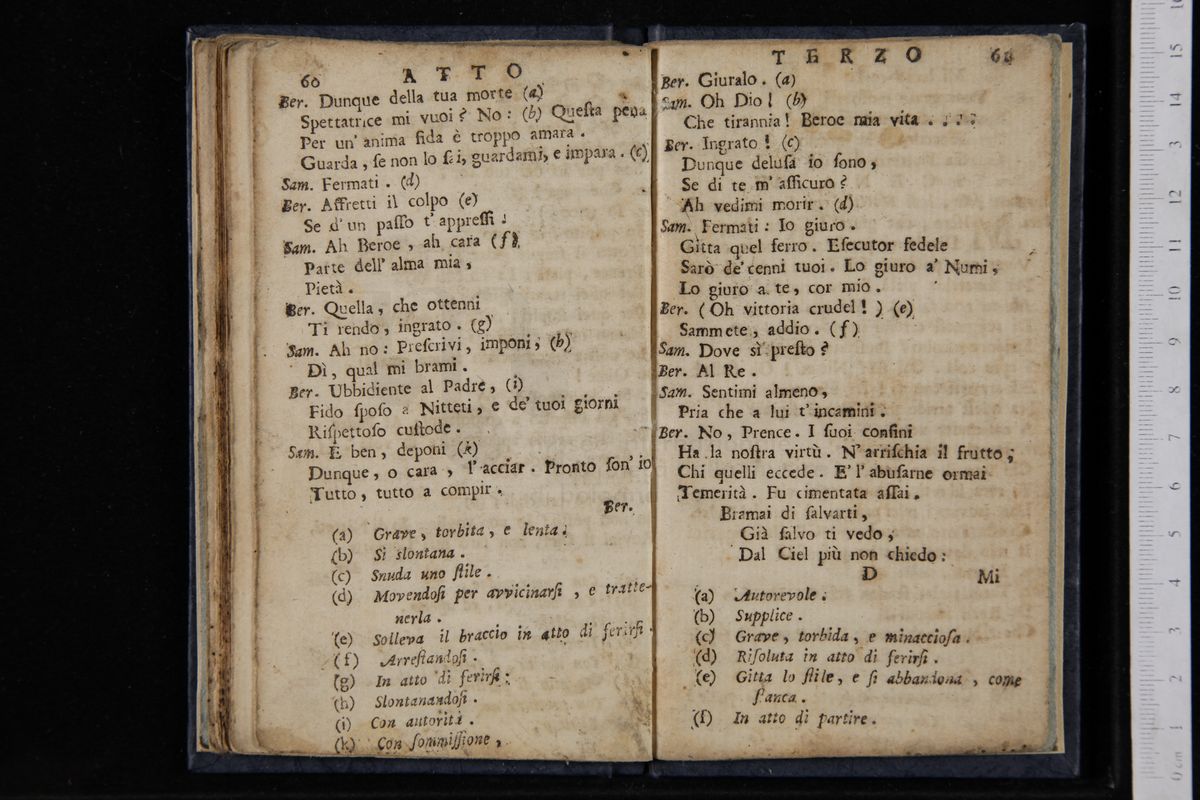 60
ATTO
Ber. Dunque della tua morte (a)
Spettatrice mi vuoi? No: (b) Queſta pena
Per un' anima fida è troppo amara.
Guarda, ſe non lo ſai, guardami, e impara. (c)
Sam. Fermati. (d)
Ber. Affretti il colpo (e)
Se d' un paſſo t' appreſſi.
Sam. Ah Beroe, ah cara (f)
Parte dell' alma mia,
Pietà.
Ber. Quella, che ottenni
Ti rendo, ingrato. (g)
Sam. Ah no: Preſcrivi, imponi, (h)
Dì, qual mi brami.
Ber. Ubbidiente al Padre, (i)
Fido ſpoſo a Nitteti, e de' tuoi giorni
Riſpettoſo cuſtode.
Sam. E ben, deponi (k)
Dunque, o cara, l' acciar. Pronto ſon' io
Tutto, tutto a compir.
Ber.
(a) Grave, torbita, e lenta.
(b) Si slontana.
(c) Snuda uno ſtile.
(d) Movendoſi per avvicinarſi, e tratte-
nerla.
(e) Solleva il braccio in atto di ferirſi.
(f) Arreſtandoſi.
(g) In atto di ferirſi.
(h) Slontanandoſi.
(i) Con autorità.
(k) Con ſommiſſione,
TERZO
Ber. Giuralo. (a)
Sam. Oh Dio! (b)
Che tirannia! Beroe mia vita . . . .
Ber. Ingrato! (c)
Dunque deluſa io ſono,
Se di te m' aſſicuro?
Ah vedimi morir. (d)
Sam. Fermati: Io giuro.
Gitta quel ferro. Eſecutor fedele
Sarò de' cenni tuoi. Lo giuro a' Numi,
Lo giuro a te, cor mio.
Ber. (Oh vittoria crudel!) (e)
Sammete, addio. (f)
Sam. Dove sì preſto?
Ber. Al Re.
Sam. Sentimi almeno,
Pria che a lui t' incamini.
Ber. No, Prence. I ſuoi confini
Ha la noſtra virtù. N' arriſchia il frutto,
Chi quelli eccede. E' l' abuſarne ormai
Temerità. Fu cimentata aſſai.
Bramai di ſalvarti,
Già ſalvo ti vedo,
Dal Ciel più non chiedo:
D
Mi
(a) Autorevole.
(b) Supplice.
(c) Grave, torbida, e minaccioſa.
(d) Riſoluta in atto di ferirſi.
(e) Gitta lo ſtile, e ſi abbandona, come
ſtanca.
(f) In atto di partire.